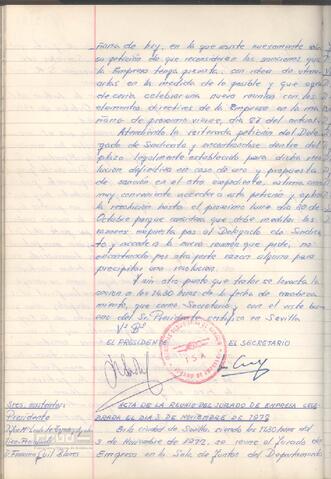 ñana de hoy, en la que insiste nuevamente sobre
su petición de que reconsideren las sanciones que
la Empresa tenga prevista, con idea de aten-
uarlas en la medida de lo posible y que agra-
decería celebrar una nueva reunión con los
elementos directivos de la Empresa en la ma-
ñana de próximo viernes, día 27 del actual.
Atendiendo la reiterada petición del Dele-
gado de Sindicato y encontrándose dentro del
plazo legalmente establecido para dicha
lución definitiva en caso de uno y propuesta
de sanción en el otro expediente, estima
muy conveniente acceder a esta petición y
la resolución hasta el próximo lunes día 30 de
Octubre porque considera que debe meditar las
razones expuestas por el Delegado de Sindica-
to y accede a la nueva reunión que pide, no
encontrando por otra parte razón alguna para
precipitar una resolución.
Y sin otro punto que tratar se levanta la
sesión a las 14.30 horas de la fecha de encabeza-
miento, que como Secretario y con el visto bu-
eno del Sr. Presidente certifico en Sevilla.
Vº Bº
EL PRESIDENTE EL SECRETARIO
I.S.A.
JURADO DE EMPRESA
Sres. asistentes: ACTA DE LA REUNIÓN DEL JURADO DE EMPRESA CELE-
Presidente BRADA EL DÍA 3 DE NOVIEMBRE DE 1972
En la ciudad de Sevilla siendo las 12.30 horas del
3 de Noviembre de 1972, se reune el Jurado de
D. Francisco Gil Empresa en la Sala de Juntas del Departamento